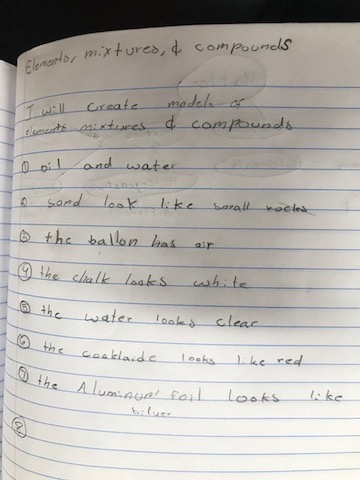 Elements, mixtures, & compounds
I will create models of
elements mixtures & compounds
① oil and water
② sand look like small rocks
③ the ballon has air
④ the chalk looks white
⑤ the water looks clear
⑥ the cooklaide looks like red
⑦ the Aluminum foil looks like
silver
⑧